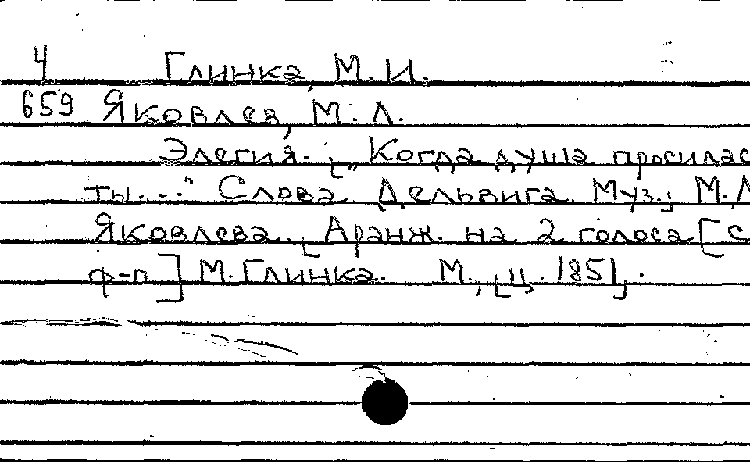 4 Глинка, М. И.
659 Яковлев, М. Л.
Элегия. [„Когда душа просилас
ты..." Слова Дельвига. Муз.; М. Л
Яковлева. [Аранж. на 2 голоса [с
ф-п] М. Глинка. М., [ц. 1851].